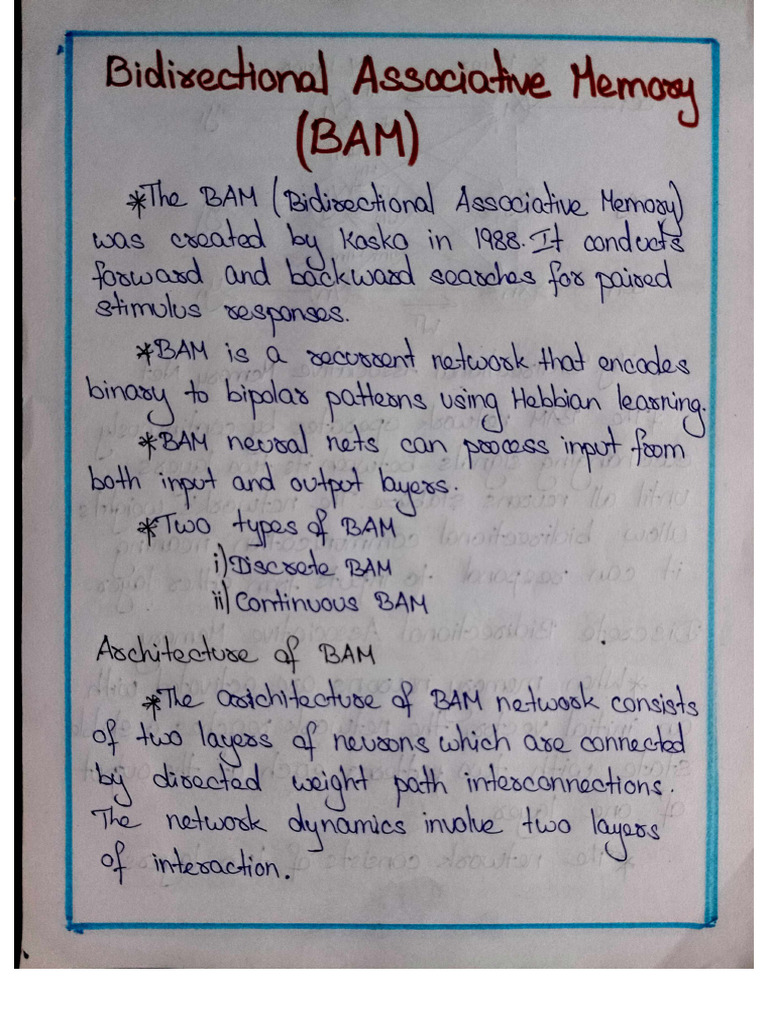 Bidirectional Associative Memory
(BAM)
*The BAM (Bidirectional Associative Memory)
was created by Kosko in 1988. It conducts
forward and backward searches for paired
stimulus responses.
*BAM is a recurrent network that encodes
binary to bipolar patterns using Hebbian learning.
*BAM neural nets can process input from
both input and output layers.
*Two types of BAM
i) Discrete BAM
ii) Continuous BAM
Architecture of BAM
*The architecture of BAM network consists
of two layers of neurons which are connected
by directed weight path interconnections.
The network dynamics involve two layers
of interaction.